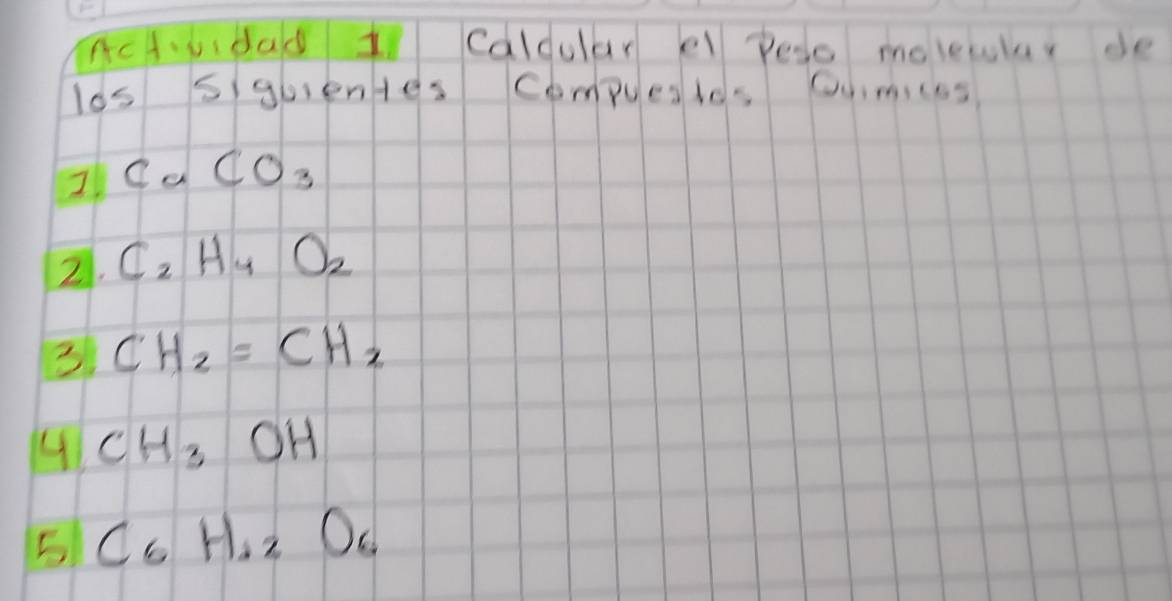 Actividad 1. Calcular el Peso molecular de
los Siguientes Compuestos Quimicos
1. CaCO₃
2. C₂H₄O₂
3. CH₂=CH₂
4. CH₃OH
5. C₆H₁₂O₆